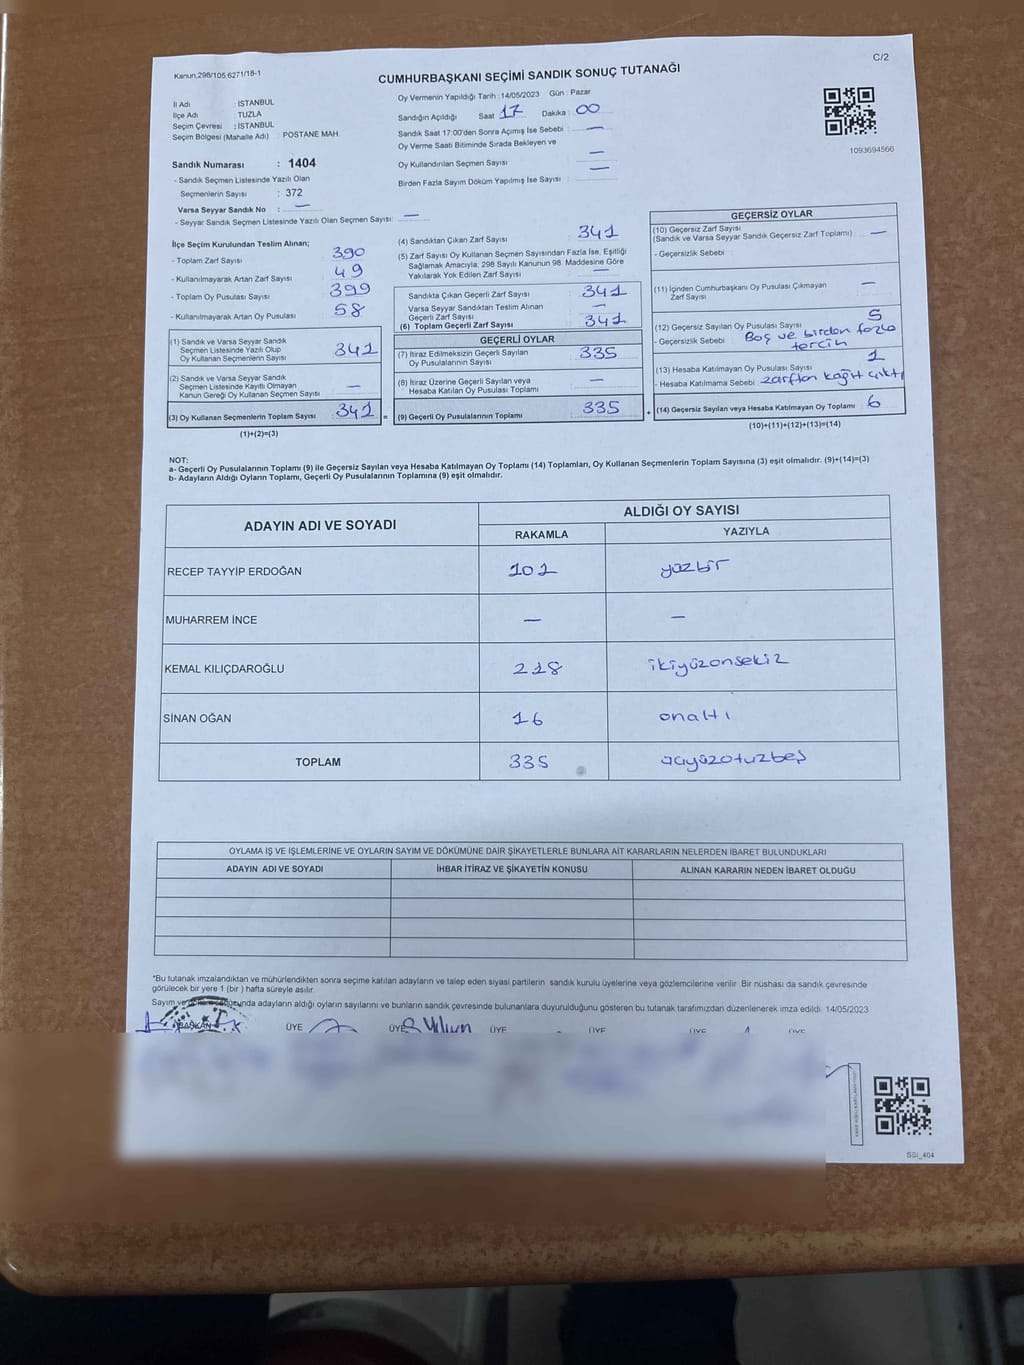 Kanun:298/105;6271/18-1
C/2
CUMHURBAŞKANI SEÇİMİ SANDIK SONUÇ TUTANAĞI
İl Adı : İSTANBUL
İlçe Adı : TUZLA
Seçim Çevresi : İSTANBUL
Seçim Bölgesi (Mahalle Adı) POSTANE MAH.
Sandık Numarası : 1404
- Sandık Seçmen Listesinde Yazılı Olan
Seçmenlerin Sayısı : 372
Varsa Seyyar Sandık No : —
- Seyyar Sandık Seçmen Listesinde Yazılı Olan Seçmen Sayısı: —
Oy Vermenin Yapıldığı Tarih :14/05/2023 Gün : Pazar
Sandığın Açıldığı Saat : 17 Dakika : 00
Sandık Saat 17:00'den Sonra Açımış İse Sebebi : —
Oy Verme Saati Bitiminde Sırada Bekleyen ve
Oy Kullandırılan Seçmen Sayısı —
Birden Fazla Sayım Döküm Yapılmış İse Sayısı : —
1093694566
İlçe Seçim Kurulundan Teslim Alınan;
- Toplam Zarf Sayısı : 390
- Kullanılmayarak Artan Zarf Sayısı : 49
- Toplam Oy Pusulası Sayısı : 399
- Kullanılmayarak Artan Oy Pusulası : 58
(1) Sandık ve Varsa Seyyar Sandık
Seçmen Listesinde Yazılı Olup
Oy Kullanan Seçmenlerin Sayısı : 341
(2) Sandık ve Varsa Seyyar Sandık
Seçmen Listesinde Kayıtlı Olmayan
Kanun Gereği Oy Kullanan Seçmen Sayısı —
(3) Oy Kullanan Seçmenlerin Toplam Sayısı : 341 =
(1)+(2)=(3)
(4) Sandıktan Çıkan Zarf Sayısı : 341
(5) Zarf Sayısı Oy Kullanan Seçmen Sayısından Fazla İse, Eşitliği
Sağlamak Amacıyla; 298 Sayılı Kanunun 98. Maddesine Göre
Yakılarak Yok Edilen Zarf Sayısı —
Sandıkta Çıkan Geçerli Zarf Sayısı : 341
Varsa Seyyar Sandıktan Teslim Alınan
Geçerli Zarf Sayısı —
(6) Toplam Geçerli Zarf Sayısı : 341
GEÇERLİ OYLAR
(7) İtiraz Edilmeksizin Geçerli Sayılan
Oy Pusulalarının Sayısı : 335
(8) İtiraz Üzerine Geçerli Sayılan veya
Hesaba Katılan Oy Pusulası Toplamı : —
(9) Geçerli Oy Pusulalarının Toplamı : 335 +
GEÇERSİZ OYLAR
(10) Geçersiz Zarf Sayısı
(Sandık ve Varsa Seyyar Sandık Geçersiz Zarf Toplamı) : —
- Geçersizlik Sebebi :
(11) İçinden Cumhurbaşkanı Oy Pusulası Çıkmayan
Zarf Sayısı : —
(12) Geçersiz Sayılan Oy Pusulası Sayısı : 5
- Geçersizlik Sebebi : Boş ve birden fazla
tercih
(13) Hesaba Katılmayan Oy Pusulası Sayısı : 1
- Hesaba Katılmama Sebebi : zarftan kağıt çıktı
(14) Geçersiz Sayılan veya Hesaba Katılmayan Oy Toplamı : 6
(10)+(11)+(12)+(13)=(14)
NOT:
a- Geçerli Oy Pusulalarının Toplamı (9) ile Geçersiz Sayılan veya Hesaba Katılmayan Oy Toplamı (14) Toplamları, Oy Kullanan Seçmenlerin Toplam Sayısına (3) eşit olmalıdır. (9)+(14)=(3)
b- Adayların Aldığı Oyların Toplamı, Geçerli Oy Pusulalarının Toplamına (9) eşit olmalıdır.
ADAYIN ADI VE SOYADI ALDIĞI OY SAYISI
RAKAMLA YAZIYLA
RECEP TAYYİP ERDOĞAN 101 yüzbir
MUHARREM İNCE — —
KEMAL KILIÇDAROĞLU 218 ikiyüzonsekiz
SİNAN OĞAN 16 onaltı
TOPLAM 335 üçyüzotuzbeş
OYLAMA İŞ VE İŞLEMLERİNE VE OYLARIN SAYIM VE DÖKÜMÜNE DAİR ŞİKAYETLERLE BUNLARA AİT KARARLARIN NELERDEN İBARET BULUNDUKLARI
ADAYIN ADI VE SOYADI İHBAR İTİRAZ VE ŞİKAYETİN KONUSU ALINAN KARARIN NEDEN İBARET OLDUĞU
*Bu tutanak imzalandıktan ve mühürlendikten sonra seçime katılan adayların ve talep eden siyasi partilerin sandık kurulu üyelerine veya gözlemcilerine verilir. Bir nüshası da sandık çevresinde
görülecek bir yere 1 (bir ) hafta süreyle asılır.
Sayım ve adayların aldığı oyların sayılarını ve bunların sandık çevresinde bulunanlara duyurulduğunu gösteren bu tutanak tarafımızdan düzenlenerek imza edildi. 14/05/2023
BAŞKAN ÜYE ÜYE ÜYE ÜYE ÜYE ÜYE
SSİ_404